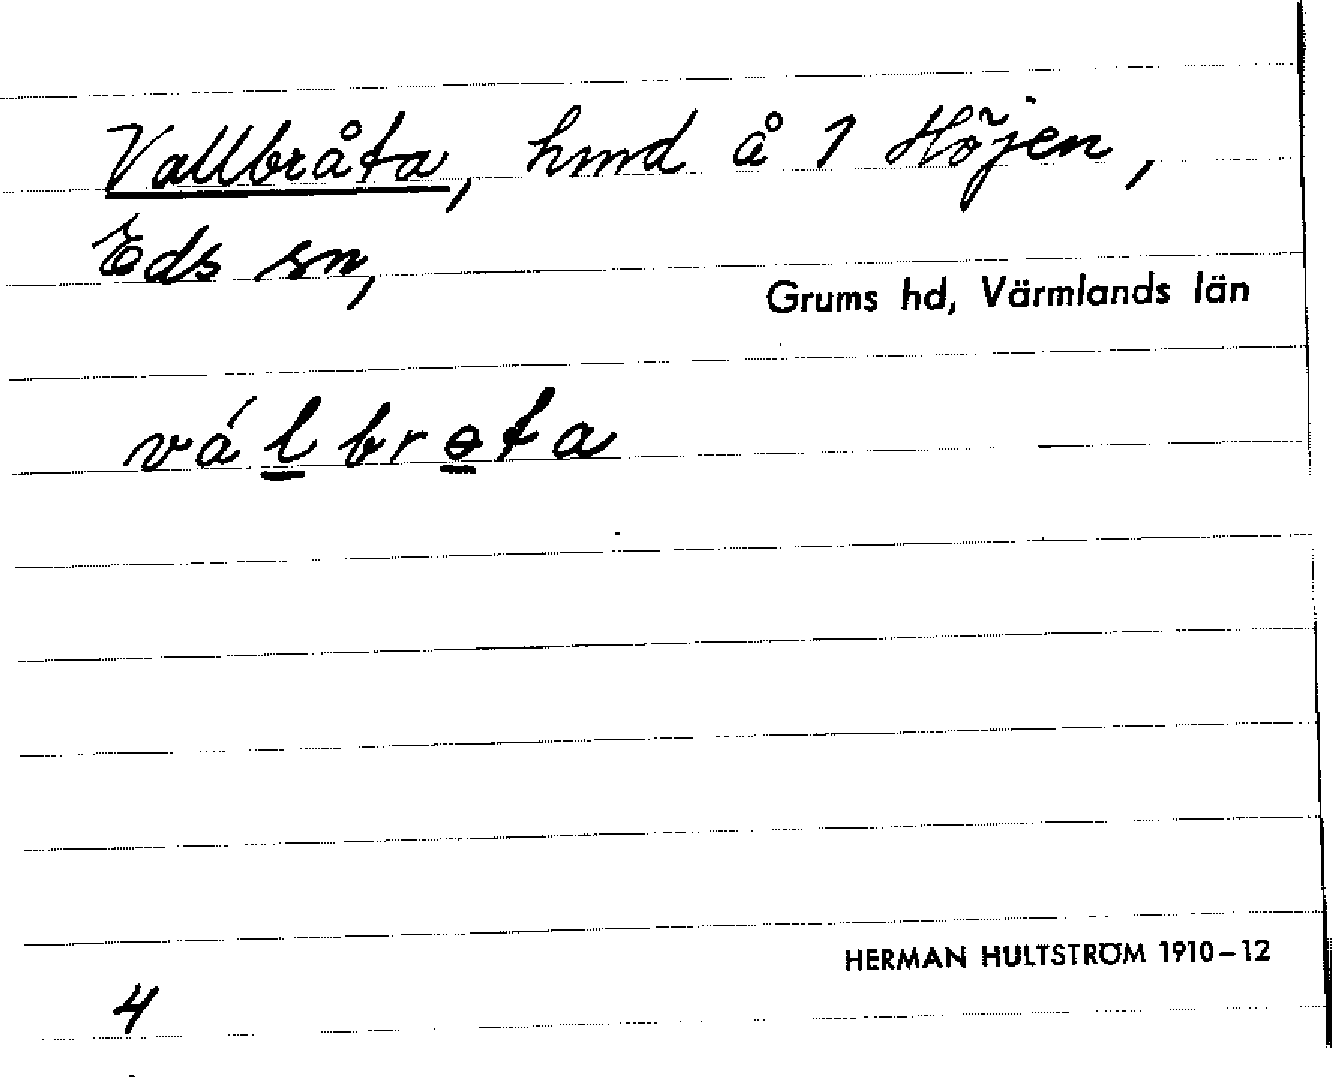 Vallbråta, hmd å 1 Höjen,
Eds sn,
Grums hd, Värmlands län
vá l br o ta
HERMAN HULTSTRÖM 1910–12
4